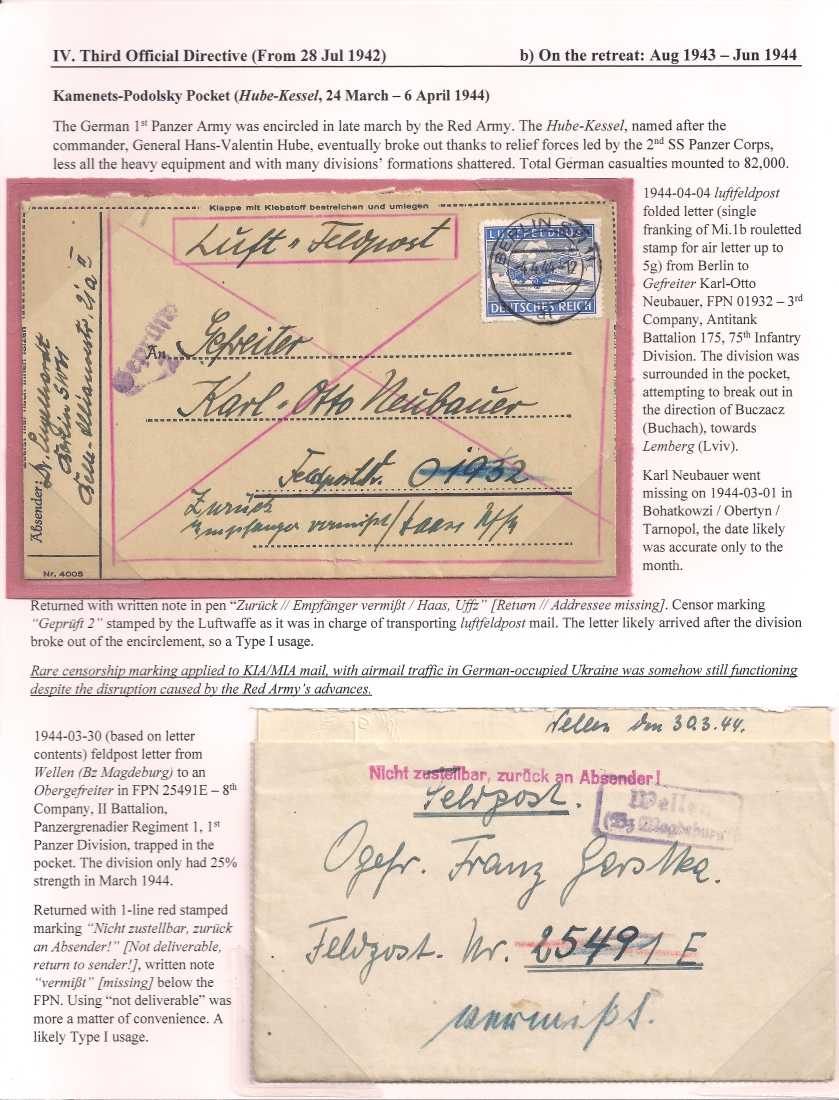 IV. Third Official Directive (From 28 Jul 1942) b) On the retreat: Aug 1943 – Jun 1944
Kamenets-Podolsky Pocket (Hube-Kessel, 24 March – 6 April 1944)
The German 1st Panzer Army was encircled in late march by the Red Army. The Hube-Kessel, named after the
commander, General Hans-Valentin Hube, eventually broke out thanks to relief forces led by the 2nd SS Panzer Corps,
less all the heavy equipment and with many divisions’ formations shattered. Total German casualties mounted to 82,000.
Klappe mit Klebstoff bestreichen und umlegen
Luft-Feldpost
BERLIN SW 11
4.4.44-12
LUFTFELDPOST
DEUTSCHES REICH
Geprüft
An Gefreiter
Karl-Otto Neubauer
Feldpostnr. 01932
Zurück
Empfänger vermißt / Haas Uffz
Absender: Dr. Engelhardt
Berlin SW 11
Nr. 4005
1944-04-04 luftfeldpost
folded letter (single
franking of Mi.1b rouletted
stamp for air letter up to
5g) from Berlin to
Gefreiter Karl-Otto
Neubauer, FPN 01932 – 3rd
Company, Antitank
Battalion 175, 75th Infantry
Division. The division was
surrounded in the pocket,
attempting to break out in
the direction of Buczacz
(Buchach), towards
Lemberg (Lviv).
Karl Neubauer went
missing on 1944-03-01 in
Bohatkowzi / Obertyn /
Tarnopol, the date likely
was accurate only to the
month.
Returned with written note in pen “Zurück // Empfänger vermißt / Haas, Uffz” [Return // Addressee missing]. Censor marking
“Geprüft 2” stamped by the Luftwaffe as it was in charge of transporting luftfeldpost mail. The letter likely arrived after the division
broke out of the encirclement, so a Type I usage.
Rare censorship marking applied to KIA/MIA mail, with airmail traffic in German-occupied Ukraine was somehow still functioning
despite the disruption caused by the Red Army’s advances.
1944-03-30 (based on letter
contents) feldpost letter from
Wellen (Bz Magdeburg) to an
Obergefreiter in FPN 25491E – 8th
Company, II Battalion,
Panzergrenadier Regiment 1, 1st
Panzer Division, trapped in the
pocket. The division only had 25%
strength in March 1944.
Returned with 1-line red stamped
marking “Nicht zustellbar, zurück
an Absender!” [Not deliverable,
return to sender!], written note
“vermißt” [missing] below the
FPN. Using “not deliverable” was
more a matter of convenience. A
likely Type I usage.
Wellen den 30.3.44.
Nicht zustellbar, zurück an Absender!
Feldpost.
Wellen
(Bz Magdeburg)
Ogefr. Franz Gerstka.
Feldpost. Nr. 25491 E
vermißt.